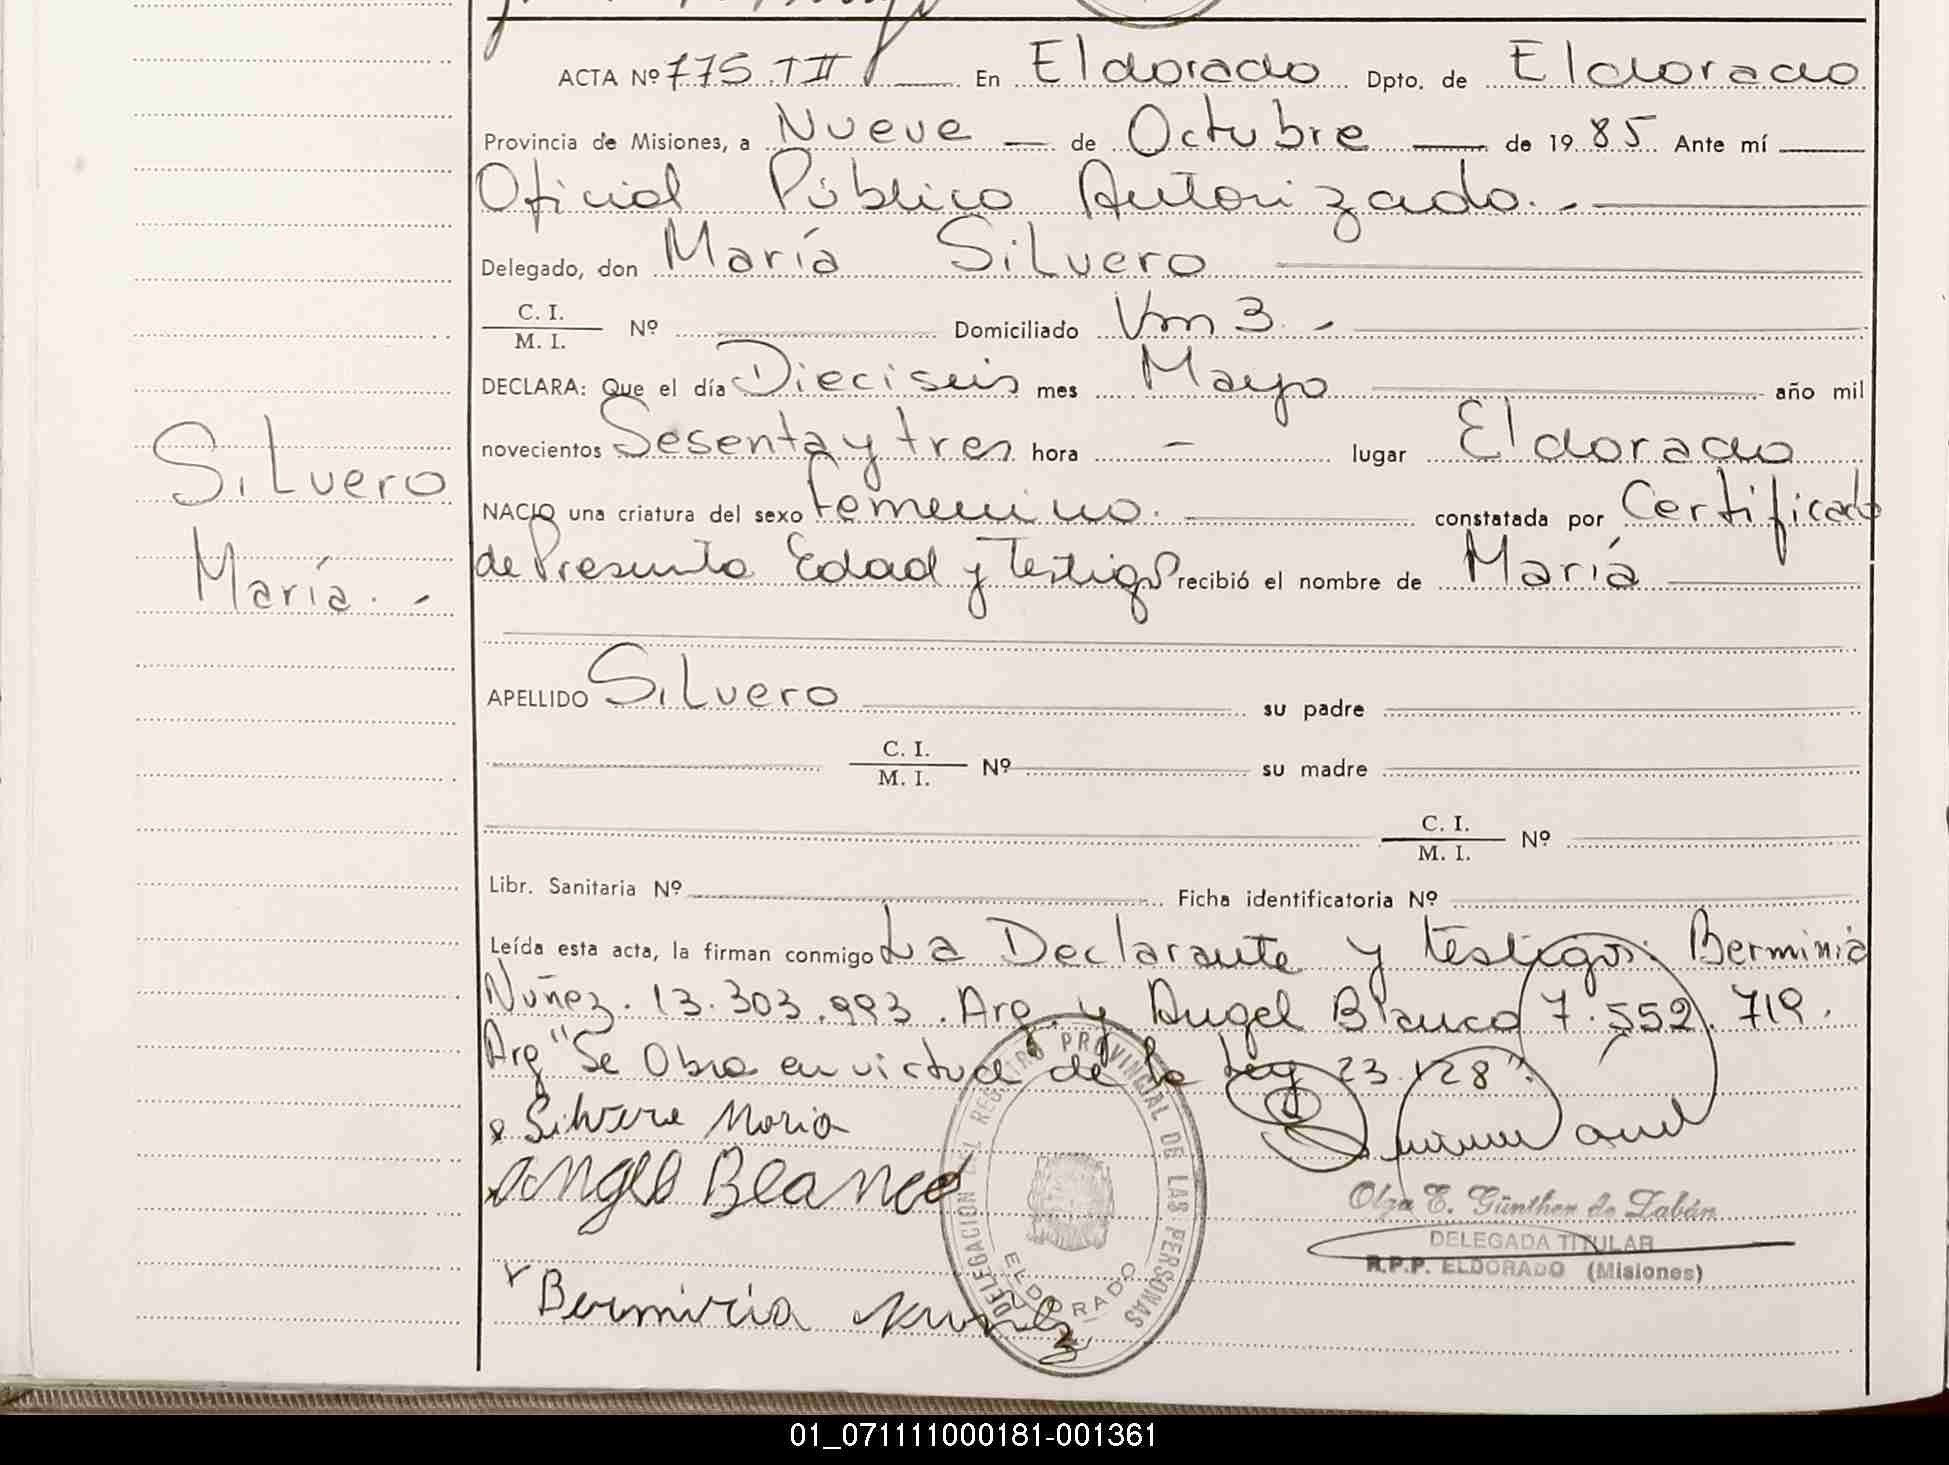 ACTA Nº 775 TII En Eldorado Dpto. de Eldorado
Provincia de Misiones, a Nueve de Octubre de 1985 Ante mí
Oficial Público Autorizado.-
Delegado, don María Silvero
C. I.
M. I. Nº Domiciliado Km 3.-
DECLARA: Que el día Dieciseis mes Mayo año mil
novecientos Sesenta y tres hora - lugar Eldorado
NACIO una criatura del sexo Femenino. constatada por Certificado
de Presunta Edad y Testigos recibió el nombre de María
Silvero
María.-
APELLIDO Silvero su padre
C. I.
M. I. Nº su madre
C. I.
M. I. Nº
Libr. Sanitaria Nº Ficha identificatoria Nº
Leída esta acta, la firman conmigo La Declarante y testigos: Berminia
Nuñez. 13.303.993. Arg. y Angel Blanco 7.552.719.
Arg "Se Obra en virtud de la Ley 23.128".
Silvero Maria
angel Blanco
Berminia Nuñez
DELEGACION DEL REGISTRO PROVINCIAL DE LAS PERSONAS
ELDORADO
Olga E. Günther de Labán
DELEGADA TITULAR
R.P.P. ELDORADO (Misiones)
01_071111000181-001361